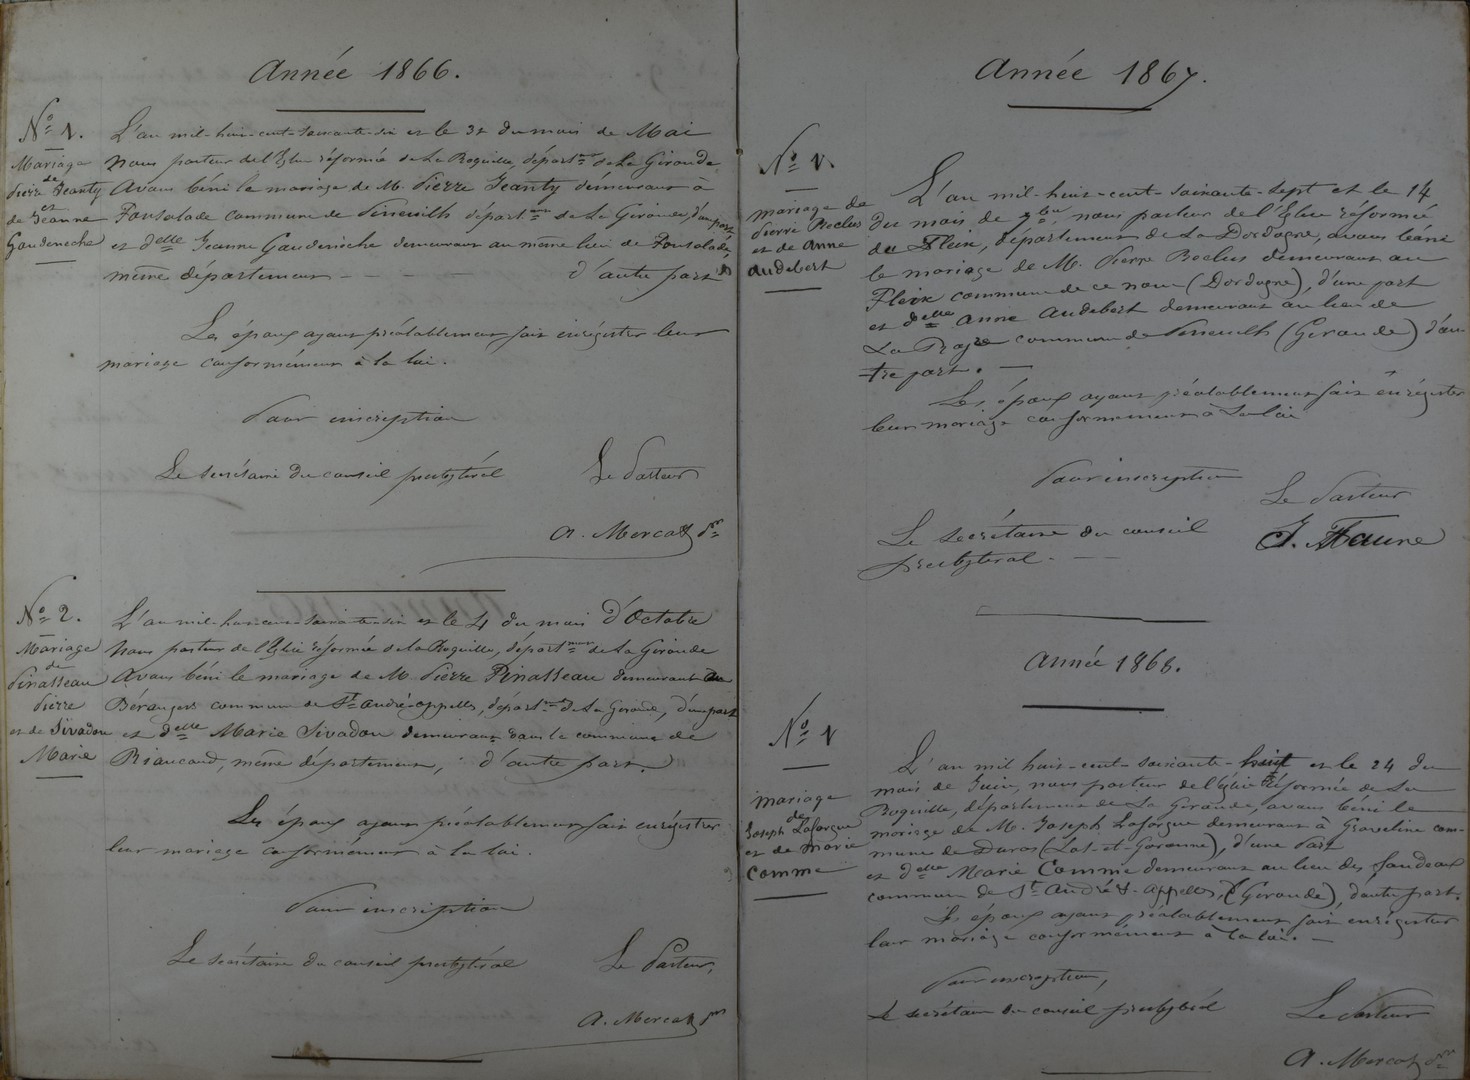 Année 1866.
No 1.
Mariage
de
Pierre Jeanty
et
de Jeanne
Gaudeneche
L'an mil-huit-cent-soixante-six et le 31 du mois de Mai
Nous pasteur de l'Eglise réformée de La Roquille, départ.nt de La Gironde
Avons béni le mariage de M. Pierre Jeanty demeurant à
Fonsalade commune de Pineuilh départ.ment de La Gironde, d'une part
et delle Jeanne Gaudenèche demeurant au même lieu de Fonsalade
même département - - - - d'autre part
Les époux ayant préalablement fait enrégister leur
mariage conformément à la loi.
Pour inscription
Le secrétaire du conseil presbytéral Le Pasteur
A. Mercat pr
No 2.
Mariage
de
Pinasseau
Pierre
et de Sivadon
Marie
L'an mil-huit-cent-soixante-six et le 4 du mois d'Octobre
Nous pasteur de l'Eglise réformée de La Roquille, départ.ment de La Gironde
Avons béni le mariage de M. Pierre Pinasseau demeurant au
Bérangers commune de St André-appelles, départ.ment de La Gironde, d'une part
et delle Marie Sivadon demeurant dans la commune de
Riaucaud, même département, d'autre part.
Les époux ayant préalablement fait enrégistrer
leur mariage conformément à la loi.
Pour inscription
Le secrétaire du conseil presbytéral Le Pasteur,
A. Mercat pr
Année 1867.
No 1.
Mariage de
Pierre Reclus
et de Anne
Audebert
L'an mil-huit-cent-soixante-sept et le 14
du mois de 7bre, nous pasteur de l'Eglise réformée
du Fleix, département de La Dordogne, avons béni
le mariage de M. Pierre Reclus demeurant au
Fleix commune de ce nom (Dordogne), d'une part
et delle Anne Audebert demeurant au lieu de
La commune de Pineuilh (Gironde) d'au-
tre part. —
Les époux ayant préalablement fait enrégister
leur mariage conformément à la loi
Pour inscription
Le Pasteur
Le secrétaire du conseil
presbytéral. —
J. Faure
Année 1868.
No 1
Mariage
de
Joseph Laforgue
et de Marie
Comme
L'an mil huit-cent-soixante-huit et le 24 du
mois de Juin, nous pasteur de l'Eglise réformée de La
Roquille, département de La Gironde, avons béni le
mariage de M. Joseph Laforgue demeurant à Graveline com-
mune de Duras (Lot-et-Garonne), d'une part
et delle Marie Comme demeurant au lieu des
commune de St André & Appelles, (Gironde), d'autre part.
Les époux ayant préalablement fait enrégistrer
leur mariage conformément à la loi. —
Pour inscription,
Le secrétaire du conseil presbytéral
Le Pasteur
A. Mercat pr